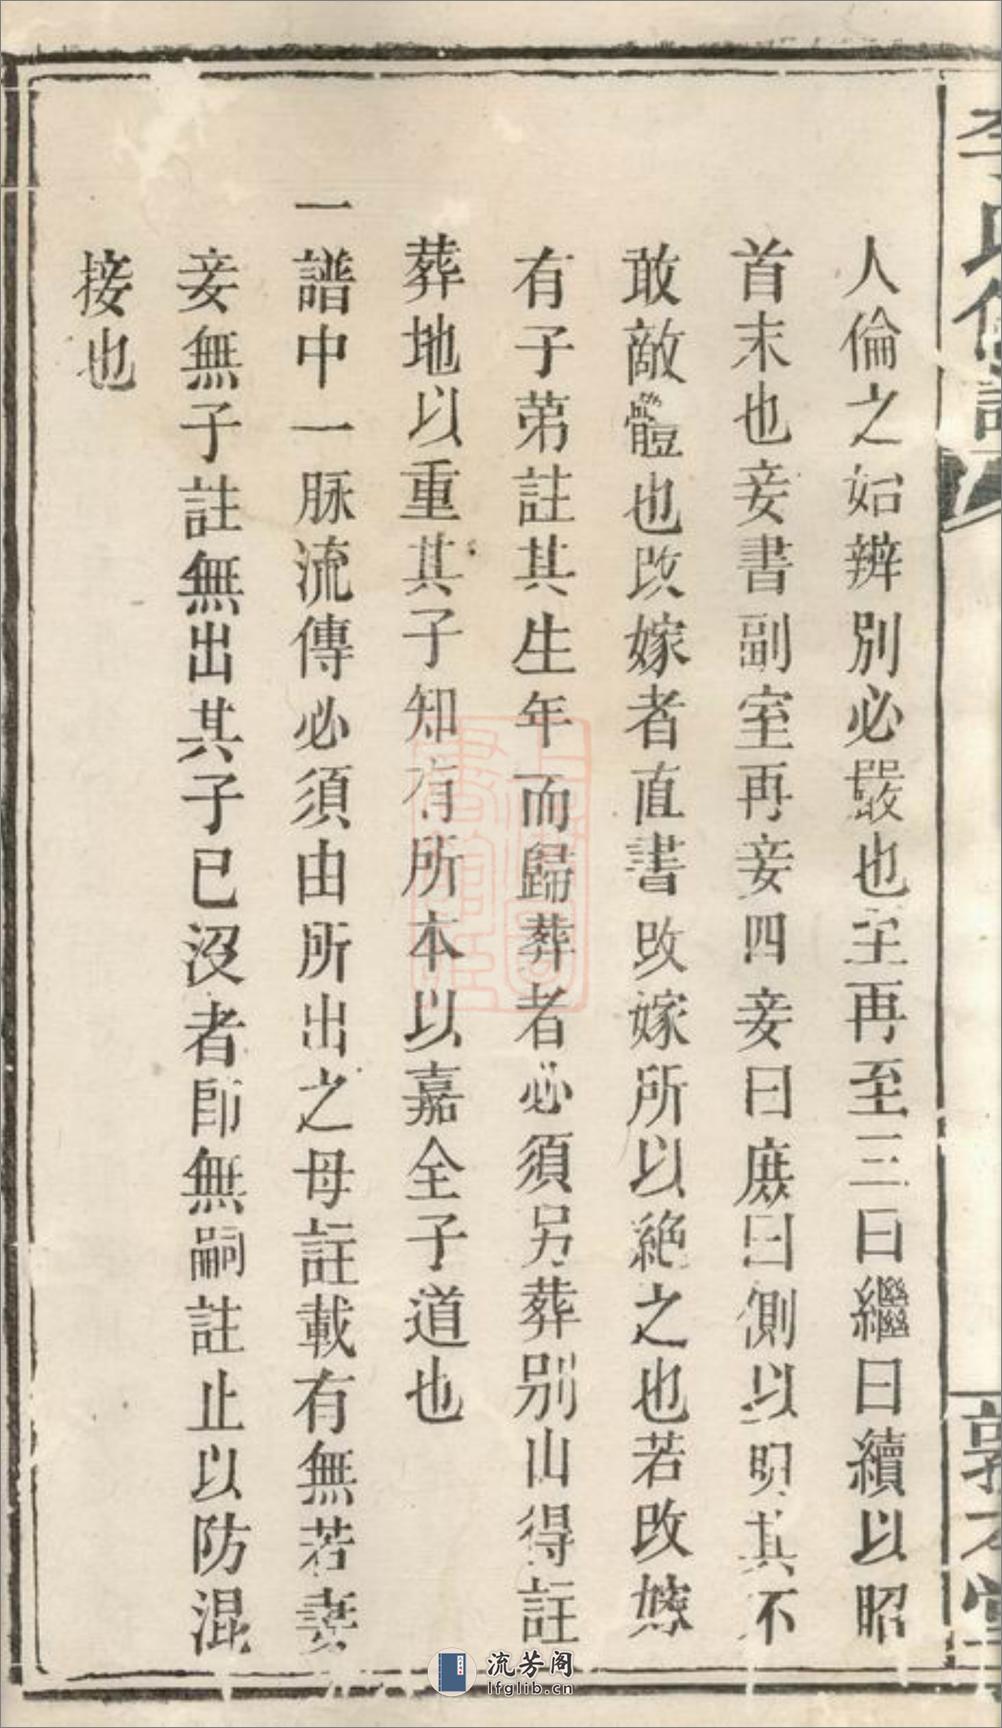 人倫之始辨別必嚴也至再至三曰繼曰續以昭
首末也妾書副室再妾四妾曰庶曰側以明其不
敢敵體也改嫁者直書改嫁所以絕之也若改嫁
有子弟註其生年而歸葬者必須另葬別山得註
葬地以重其子知有所本以嘉全子道也
一譜中一脉流傳必須由所出之母註載有無若妻
妾無子註無出其子已沒者卽無嗣註止以防混
接也
流芳阁
lfglib.cn